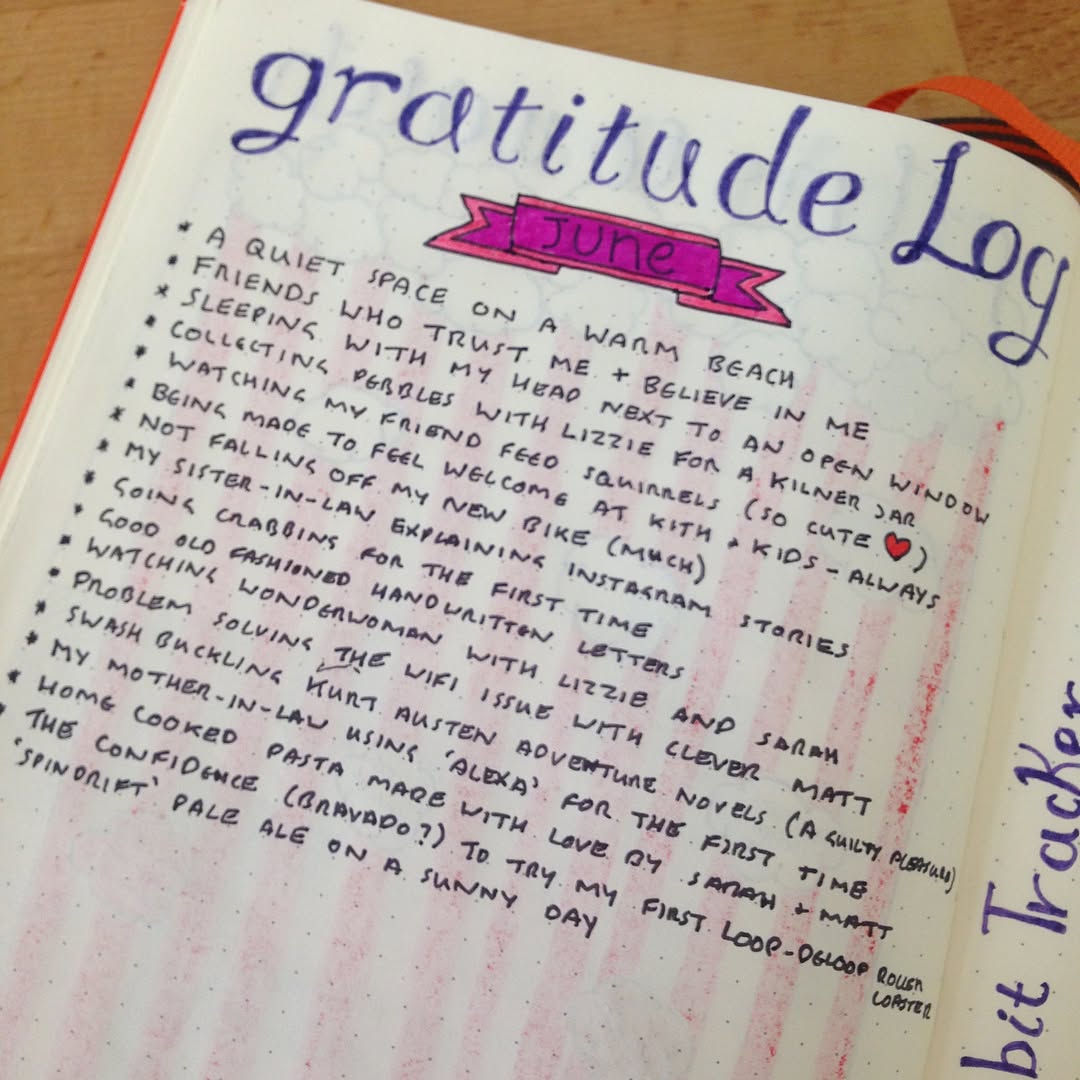 gratitude Log
June
* A QUIET SPACE ON A WARM BEACH
* FRIENDS WHO TRUST ME + BELIEVE IN ME
* SLEEPING WITH MY HEAD NEXT TO AN OPEN WINDOW
* COLLECTING PEBBLES WITH LIZZIE FOR A KILNER JAR
* WATCHING MY FRIEND FEED SQUIRRELS (SO CUTE ♥)
* BEING MADE TO FEEL WELCOME AT KITH + KIDS - ALWAYS
* NOT FALLING OFF MY NEW BIKE (MUCH)
* MY SISTER-IN-LAW EXPLAINING INSTAGRAM STORIES
* GOING CRABBING FOR THE FIRST TIME
* GOOD OLD FASHIONED HANDWRITTEN LETTERS
* WATCHING WONDERWOMAN WITH LIZZIE AND SARAH
* PROBLEM SOLVING THE WIFI ISSUE WITH CLEVER MATT
* SWASH BUCKLING KURT AUSTEN ADVENTURE NOVELS (A GUILTY PLEASURE)
* MY MOTHER-IN-LAW USING 'ALEXA' FOR THE FIRST TIME
* HOME COOKED PASTA MADE WITH LOVE BY SARAH + MATT
* THE CONFIDENCE (BRAVADO?) TO TRY MY FIRST LOOP-DELOOP ROLLER
COASTER
'SPINDRIFT' PALE ALE ON A SUNNY DAY
bit Tracker